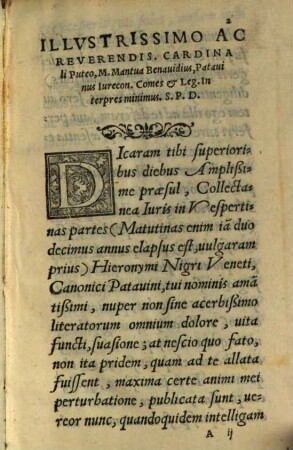 2
ILLVSTRISSIMO AC
REVERENDIS. CARDINA
li Puteo, M. Mantua Benauidius, Pataui
nus Iurecon. Comes & Leg. In
terpres minimus. S. P. D.
DIcaram tibi superiori
bus diebus Amplißi
me præsul, Collecta
nea Iuris in Vesperti
nas partes (Matutinas enim iã duo
decimus annus elapsus est, uulgaram
prius) Hieronymi Nigri Veneti,
Canonici Patauini, tui nominis amã
tißimi, nuper non sine acerbißimo
literatorum omnium dolore, uita
functi, suasione; at nescio quo fato,
non ita pridem, quam ad te allata
fuissent, maxima certe animi mei
perturbatione, publicata sunt, ue-
reor nunc, quandoquidem intelligam
A ij